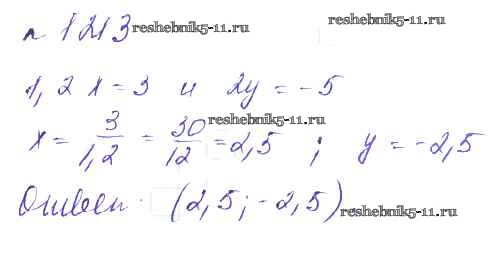 № 1213 reshebnik5-11.ru reshebnik5-11.ru
1,2 x = 3 и 2y = -5
reshebnik5-11.ru
x = 3/1,2 = 30/12 = 2,5 ; y = -2,5
Ответ: (2,5; -2,5) reshebnik5-11.ru